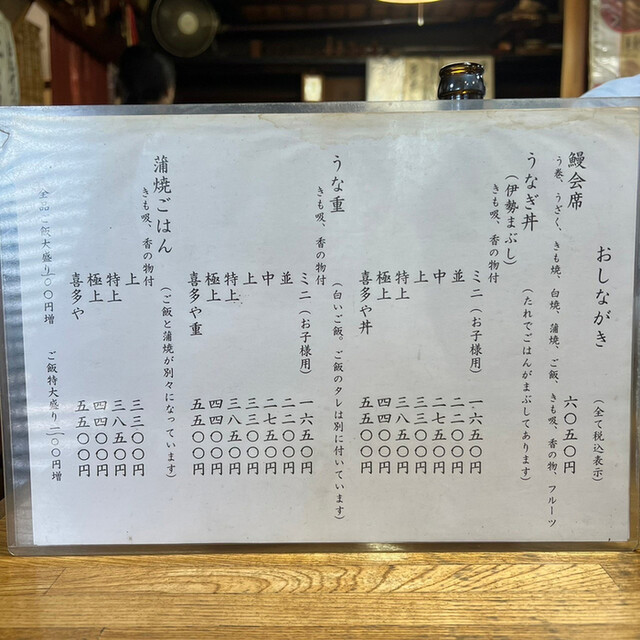 おしながき
(全て税込表示)
鰻会席 六〇五〇円
う巻、うざく、きも焼、白焼、蒲焼、ご飯、きも吸、香の物、フルーツ
うなぎ丼 (たれでごはんがまぶしてあります)
(伊勢まぶし)
きも吸、香の物付
ミニ(お子様用) 一六五〇円
並 二二〇〇円
中 二七五〇円
上 三三〇〇円
特上 三八五〇円
極上 四四〇〇円
喜多や丼 五五〇〇円
うな重 (白いご飯。ご飯のタレは別に付いています)
きも吸、香の物付
ミニ(お子様用) 一六五〇円
並 二二〇〇円
中 二七五〇円
上 三三〇〇円
特上 三八五〇円
極上 四四〇〇円
喜多や重 五五〇〇円
蒲焼ごはん (ご飯と蒲焼が別々になっています)
きも吸、香の物付
上 三三〇〇円
特上 三八五〇円
極上 四四〇〇円
喜多や 五五〇〇円
全品ご飯大盛り一〇〇円増 ご飯特大盛り二〇〇円増